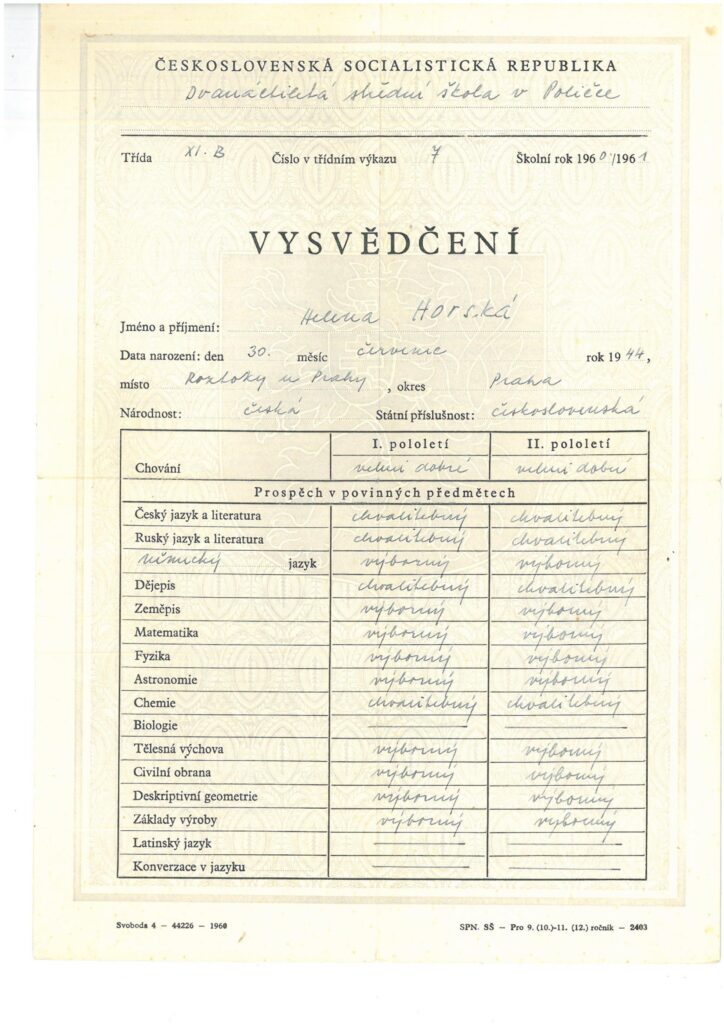 ČESKOSLOVENSKÁ SOCIALISTICKÁ REPUBLIKA
Dvanáctiletá střední škola v Poličce
Třída XI. B Číslo v třídním výkazu 7 Školní rok 1960/1961
VYSVĚDČENÍ
Jméno a příjmení: Helena Horská
Data narození: den 30. měsíc červenec rok 1944,
místo Roztoky u Prahy, okres Praha
Národnost: česká Státní příslušnost: československá
I. pololetí II. pololetí
Chování velmi dobré velmi dobré
Prospěch v povinných předmětech
Český jazyk a literatura chvalitebný chvalitebný
Ruský jazyk a literatura chvalitebný chvalitebný
německý jazyk výborný výborný
Dějepis chvalitebný chvalitebný
Zeměpis výborný výborný
Matematika výborný výborný
Fyzika výborný výborný
Astronomie výborný výborný
Chemie chvalitebný chvalitebný
Biologie
Tělesná výchova výborný výborný
Civilní obrana výborný výborný
Deskriptivní geometrie výborný výborný
Základy výroby výborný výborný
Latinský jazyk
Konverzace v jazyku
Svoboda 4 – 44226 – 1960 SPN. SŠ – Pro 9. (10.)-11. (12.) ročník – 2403